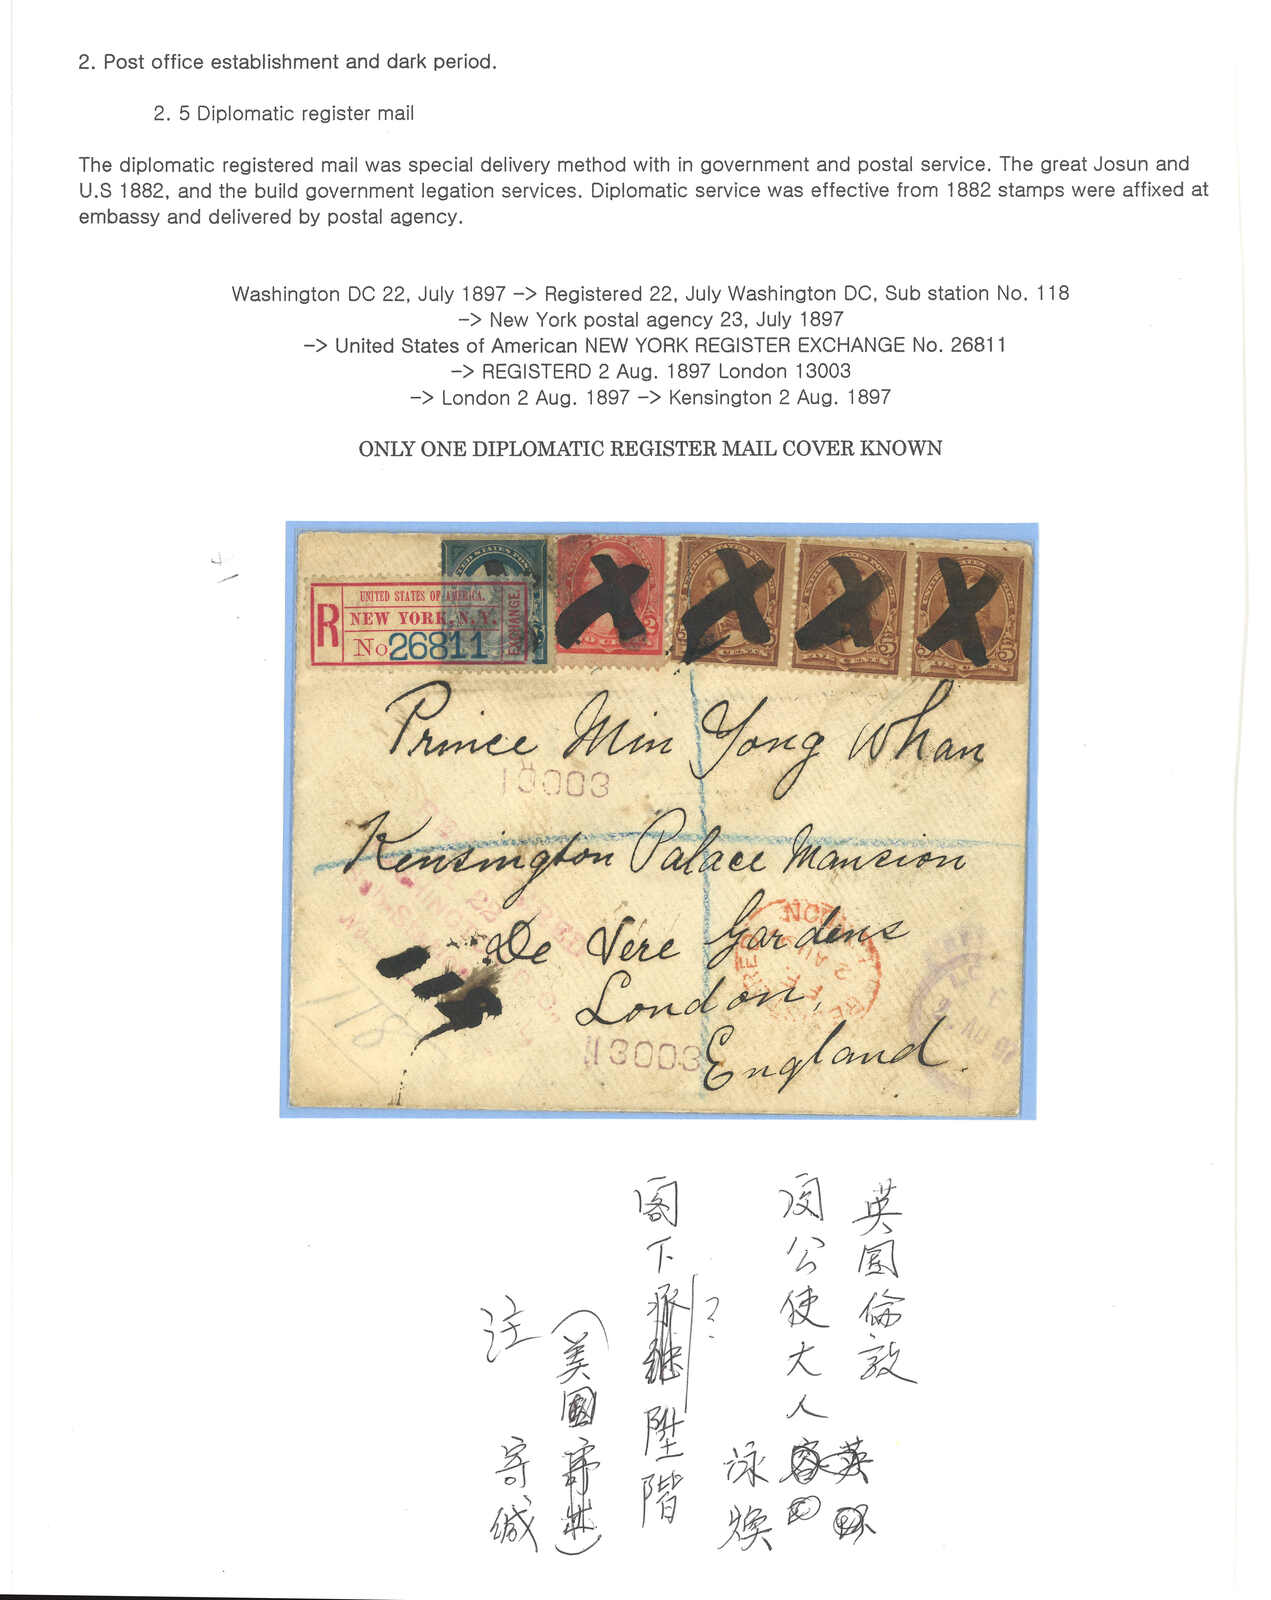 2. Post office establishment and dark period.
2. 5 Diplomatic register mail
The diplomatic registered mail was special delivery method with in government and postal service. The great Josun and
U.S 1882, and the build government legation services. Diplomatic service was effective from 1882 stamps were affixed at
embassy and delivered by postal agency.
Washington DC 22, July 1897 -> Registered 22, July Washington DC, Sub station No. 118
-> New York postal agency 23, July 1897
-> United States of American NEW YORK REGISTER EXCHANGE No. 26811
-> REGISTERD 2 Aug. 1897 London 13003
-> London 2 Aug. 1897 -> Kensington 2 Aug. 1897
ONLY ONE DIPLOMATIC REGISTER MAIL COVER KNOWN
R
UNITED STATES OF AMERICA.
NEW YORK, N.Y.
No 26811
EXCHANGE
Prince Min Yong Whan
13003
Kensington Palace Mansion
De Vere Gardens
London,
England.
118
13003
英国倫敦
閔公使大人
泳煥
閣下
陞階
(美國
注
寄緘